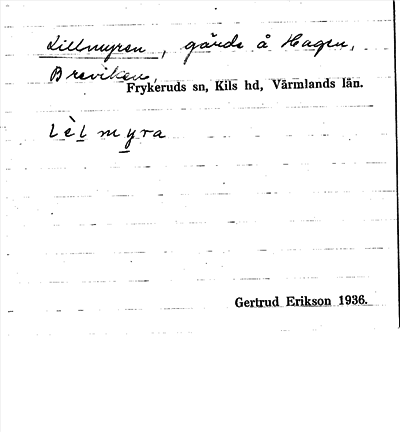 Lillmyren, gärde å Hagen,
Breviken,
Frykeruds sn, Kils hd, Värmlands län.
Lèl myra
Gertrud Erikson 1936.